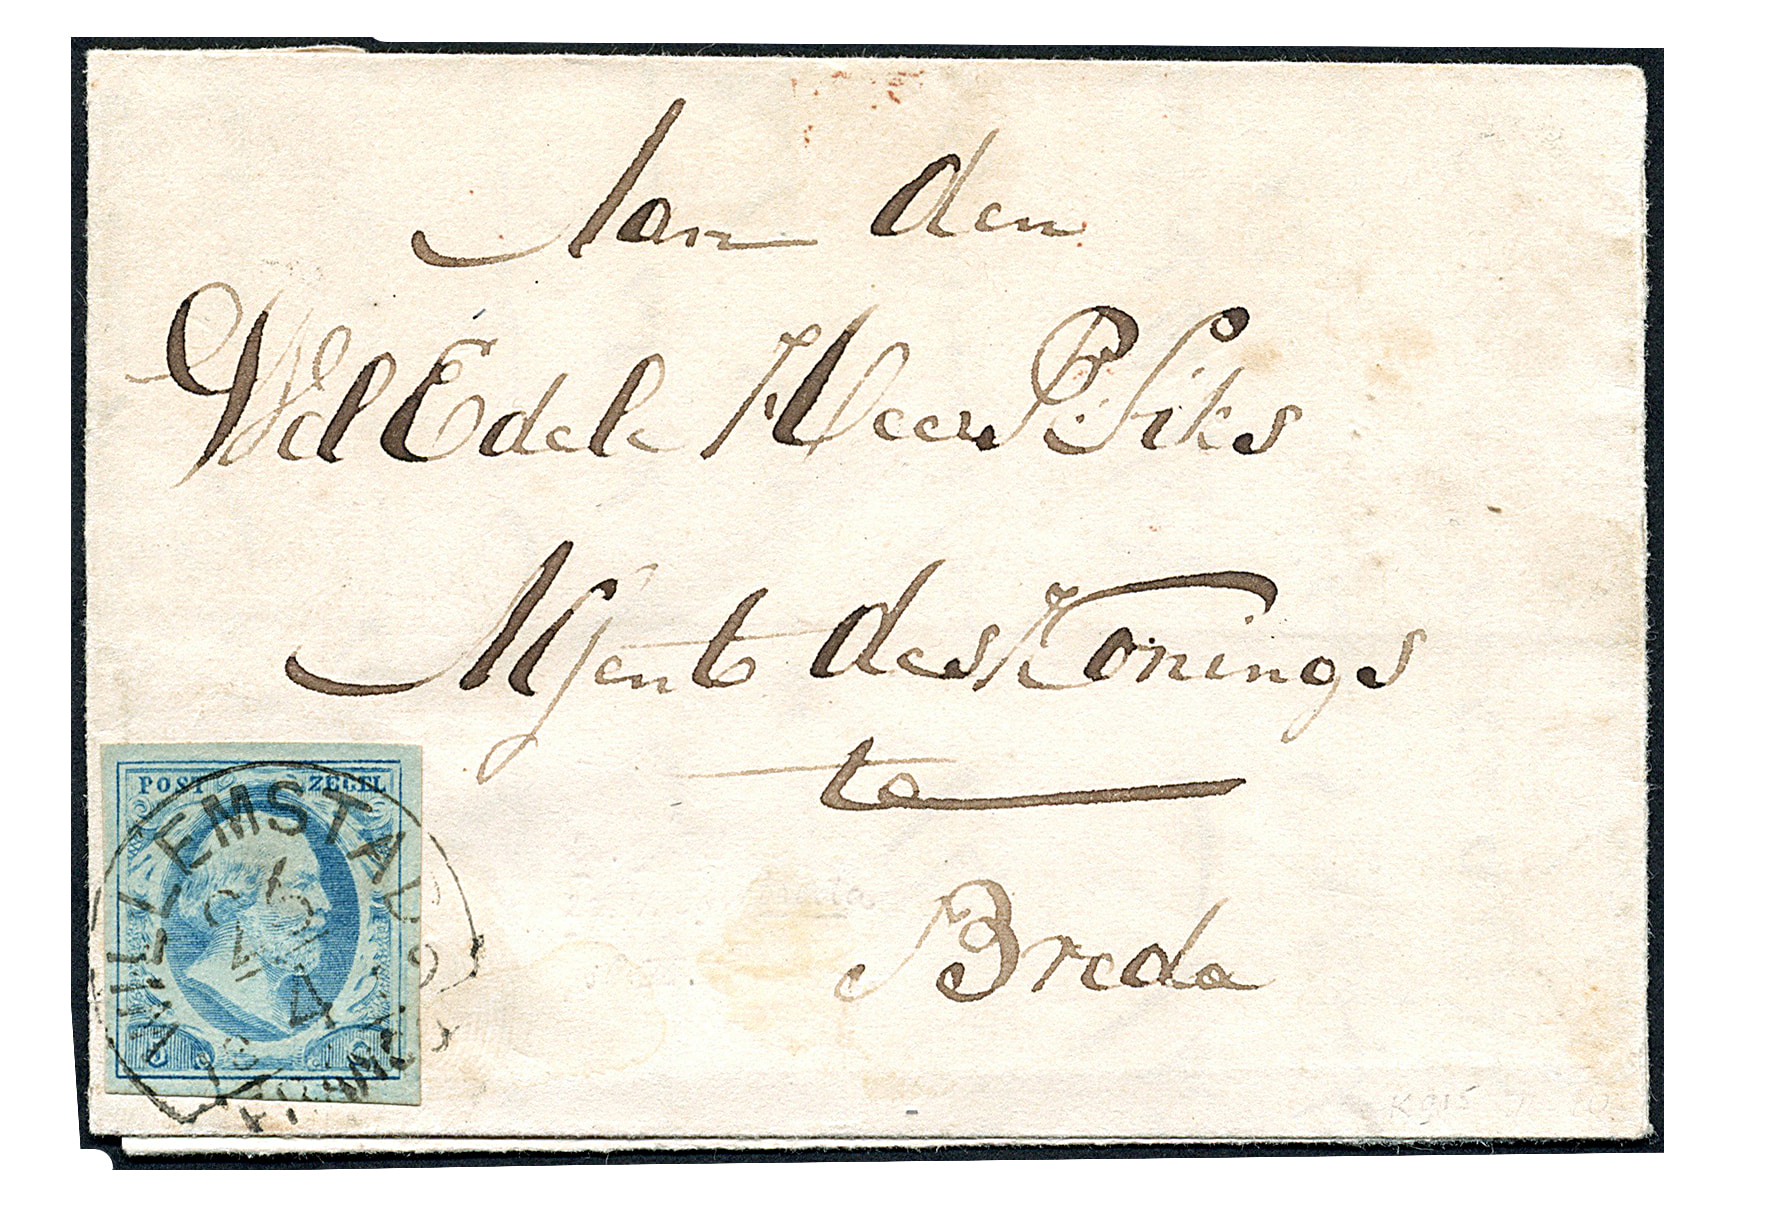 Aan den
WelEdele Heer P. Siks
Agent des Konings
te
Breda
POST ZEGEL
WILLEMSTAD
FRANCO
5 5
K915